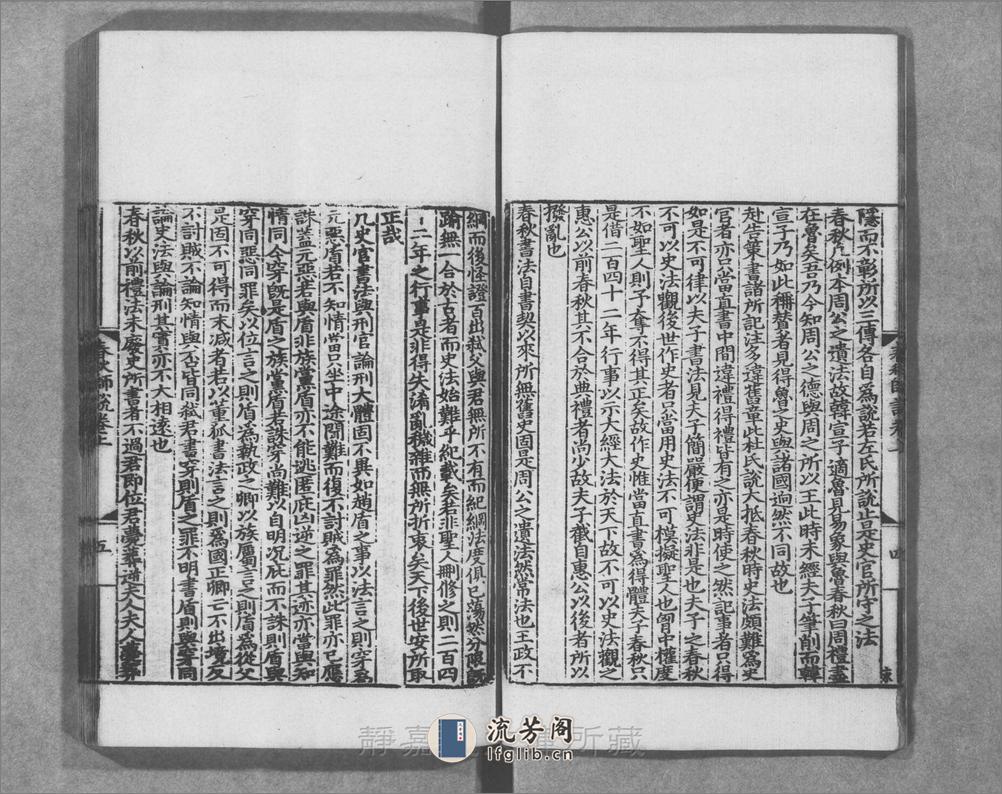 隱而不彰所以三傳各自為說若左氏所說止是史官所守之法
春秋凡例本周公之遺法故韓宣子適魯見易象與魯春秋曰周禮盡
在魯矣吾乃今知周公之德與周之所以王此時未經夫子筆削而韓
宣子乃如此稱贊者見得魯之史與諸國逈然不同故也
赴告策書諸所記注多違舊章此杜氏說大抵春秋時史法頗難為史
官者亦只當直書中間違禮得禮皆有之亦是時使之然記事者只得
如是不可律以夫子書法見夫子簡嚴便謂史法非是也夫子之春秋
不可以史法觀後世作史者只當用史法不可模擬聖人也胷中權度
不如聖人則予奪不得其正矣故作史惟當直書為得體夫子春秋只
是借二百四十二年行事以示大經大法於天下故不可以史法觀之
惠公以前春秋其不合於典禮者尚少故夫子截自惠公以後者所以
撥亂也
春秋書法自書契以來所無舊史固是周公之遺法然常法也王政不
綱而後怪證百出弒父與君無所不有而紀綱法度俱已蕩然分限既
踰無一合於古者而史法始難乎紀載矣若非聖人刪修之則二百四
十二年之行事是非得失淆亂穢雜而無所折衷矣天下後世安所取
正哉
凡史官書法與刑官論刑大體固不異如趙盾之事以法言之則穿為
元惡盾若不知情當只坐中途聞難而復不討賊為罪然此罪亦已應
誅蓋元惡若與盾非族黨盾亦不能逃匿庇凶逆之罪其迹亦當與知
情同今穿既是盾之族黨盾若誅穿尚難以自明况庇而不誅則盾與
穿同惡同罪矣以位言之則盾為執政之卿以族屬言之則盾為從父
是固不可得而末減者若以董狐書法言之則為國正卿亡不出境反
不討賊不論知情與否皆同弒君書穿則盾之罪不明書盾則與穿同
論史法與論刑其實亦不大相遠也
春秋以前禮法未廢史所書者不過君即位君薨葬逆夫人夫人薨葬
春秋師說卷上
五
流芳阁
lfglib.cn
靜嘉
所藏